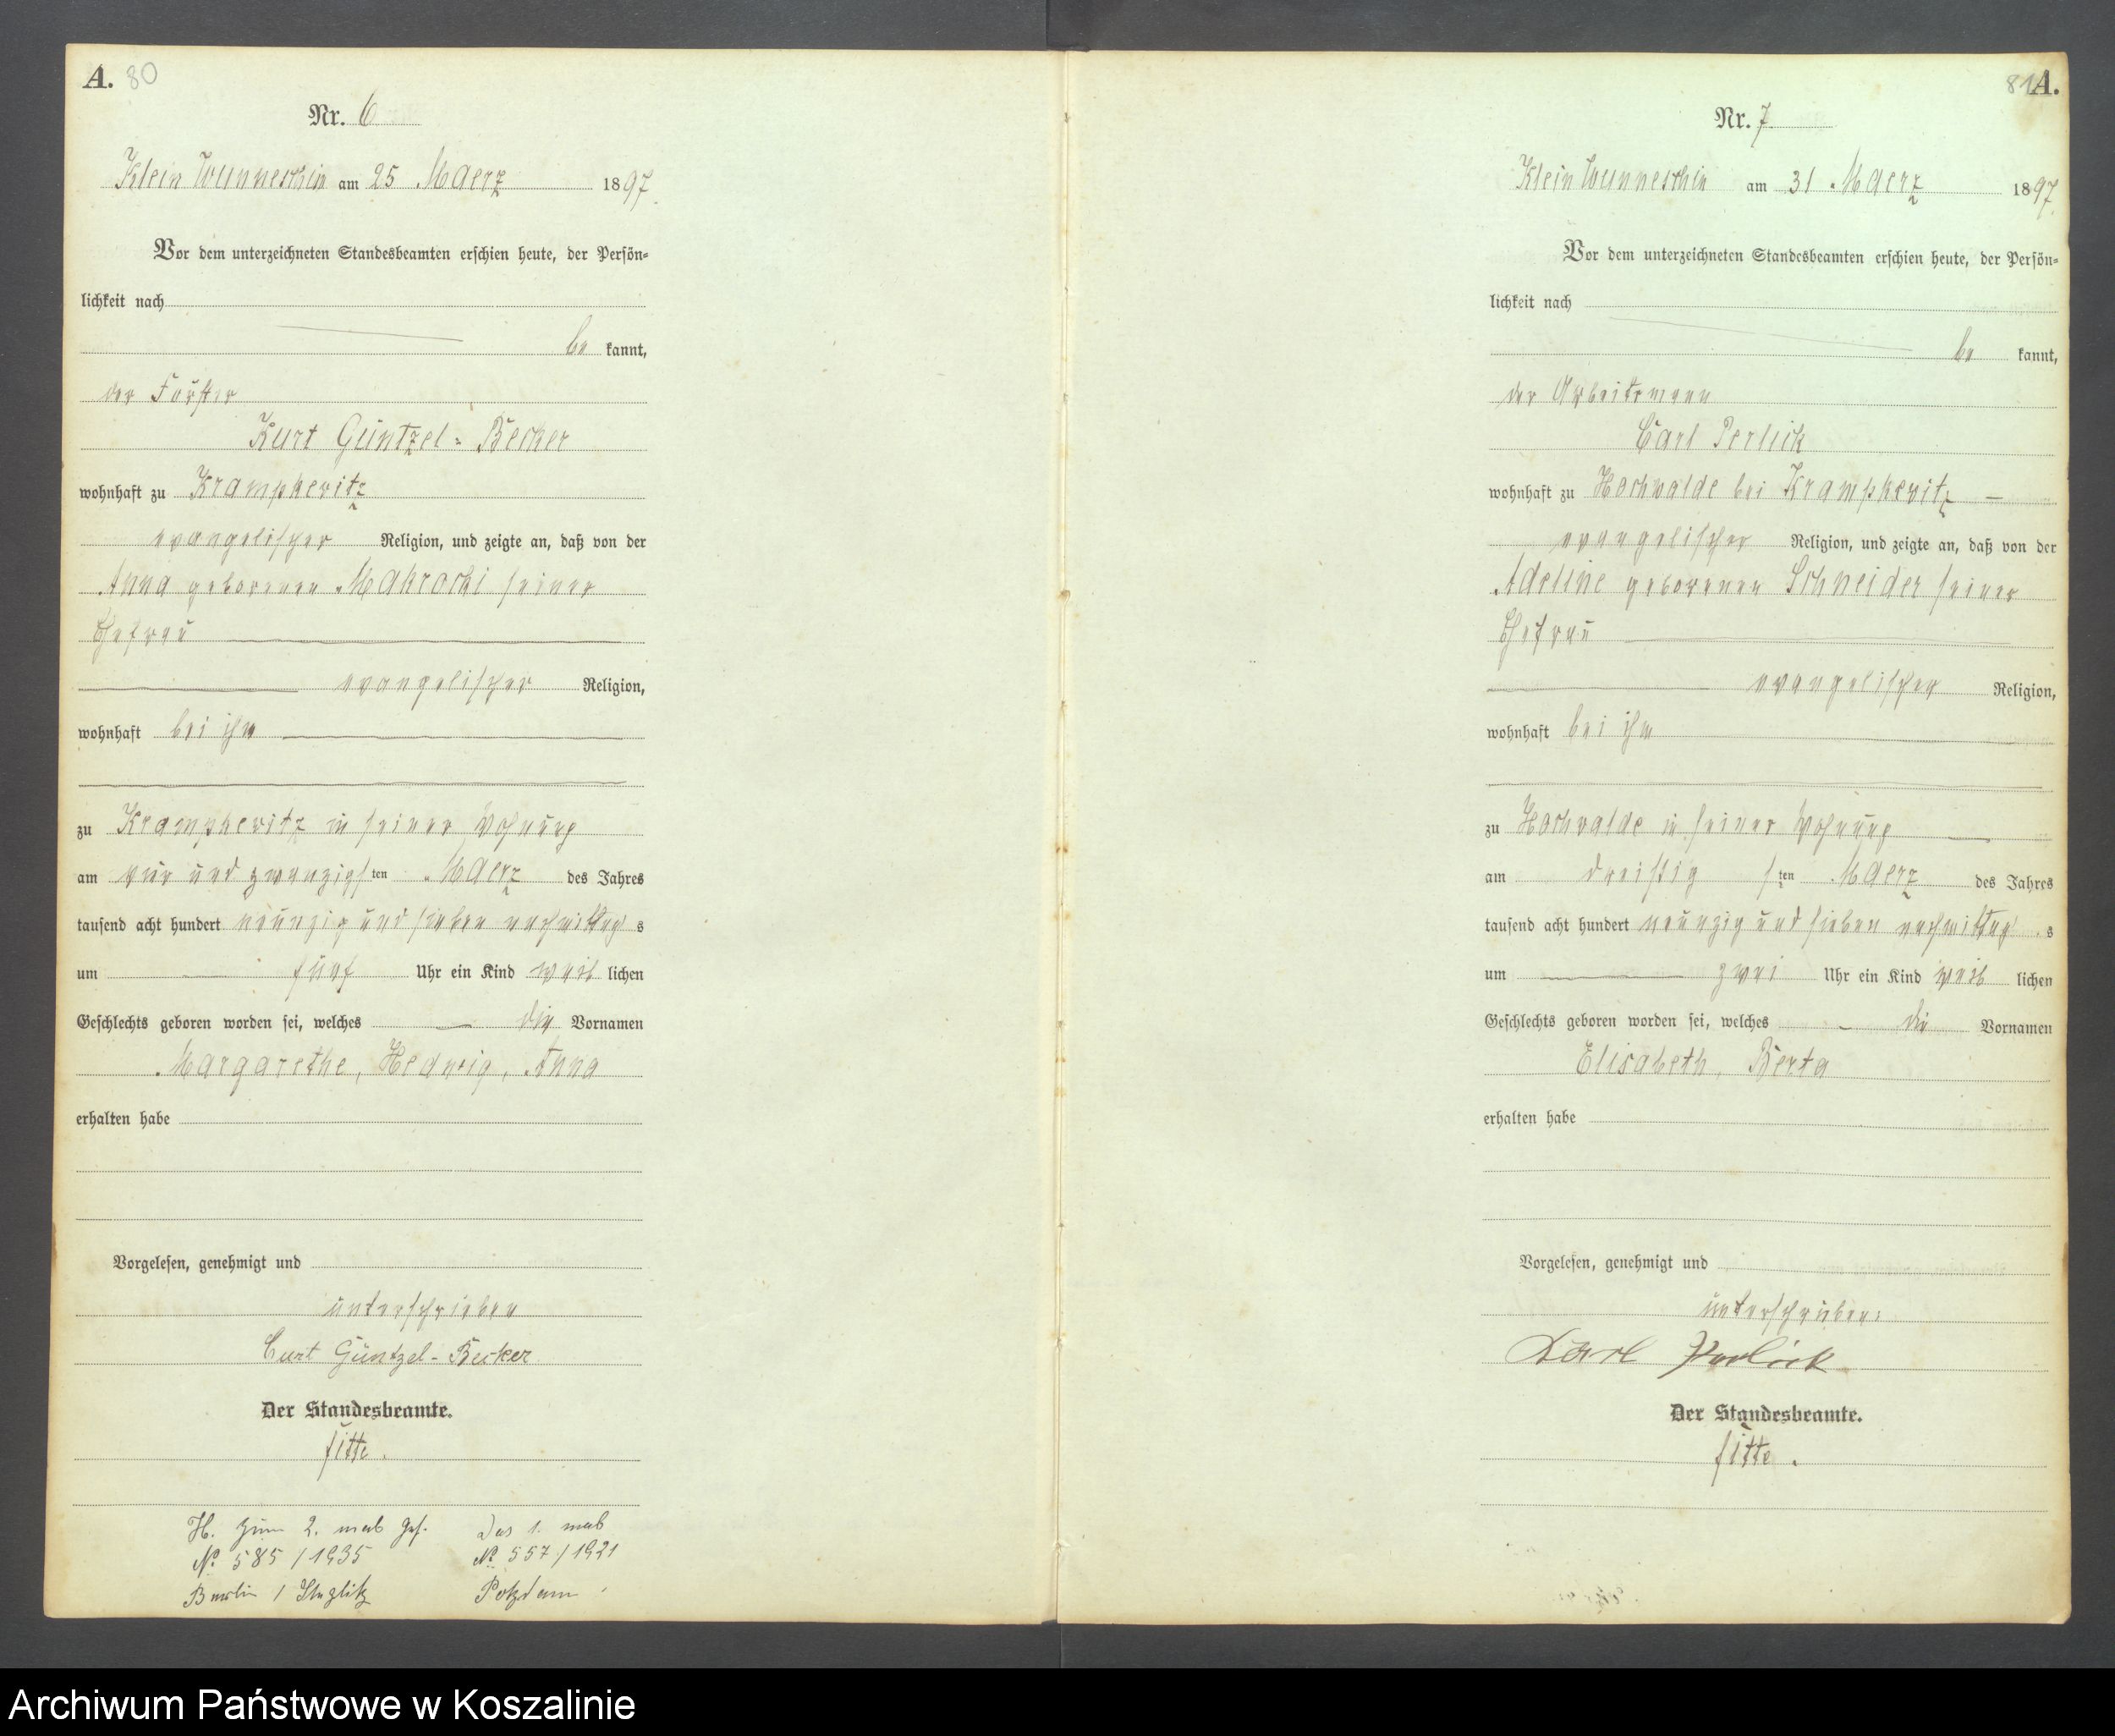 A. 80
Nr. 6
Klein Wunneschin am 25 Maerz 1897.
Vor dem unterzeichneten Standesbeamten erschien heute, der Persön-
lichkeit nach
be kannt,
der Förster
Kurt Güntzel-Becker
wohnhaft zu Krampkewitz
evangelischer Religion, und zeigte an, daß von der
Anna geborenen Makrocki seiner
Ehefrau
evangelischer Religion,
wohnhaft bei ihm
zu Krampkewitz in seiner Wohnung
am vier und zwanzigsten Maerz des Jahres
tausend acht hundert neunzig und sieben nachmittags
um fünf Uhr ein Kind weib lichen
Geschlechts geboren worden sei, welches die Vornamen
Margarethe, Hedwig, Anna
erhalten habe
Vorgelesen, genehmigt und
unterschrieben
Curt Güntzel-Becker
Der Standesbeamte.
H. zum 2. mal
No 585/1935
Berlin / Steglitz
Das 1. mal
No 557/1921
Potzdam
81 A.
Nr. 7.
Klein Wunneschin am 31 Maerz 1897.
Vor dem unterzeichneten Standesbeamten erschien heute, der Persön-
lichkeit nach
be kannt,
der Arbeitsmann
Carl Perlick
wohnhaft zu Hochwalde bei Krampkewitz
evangelischer Religion, und zeigte an, daß von der
Adeline geborenen Schneider seiner
Ehefrau
evangelischer Religion,
wohnhaft bei ihm
zu Hochwalde in seiner Wohnung
am dreißigsten Maerz des Jahres
tausend acht hundert neunzig und sieben nachmittags
um zwei Uhr ein Kind weib lichen
Geschlechts geboren worden sei, welches die Vornamen
Elisabeth, Berta
erhalten habe
Vorgelesen, genehmigt und
unterschrieben:
Karl Perlick
Der Standesbeamte.
Archiwum Państwowe w Koszalinie